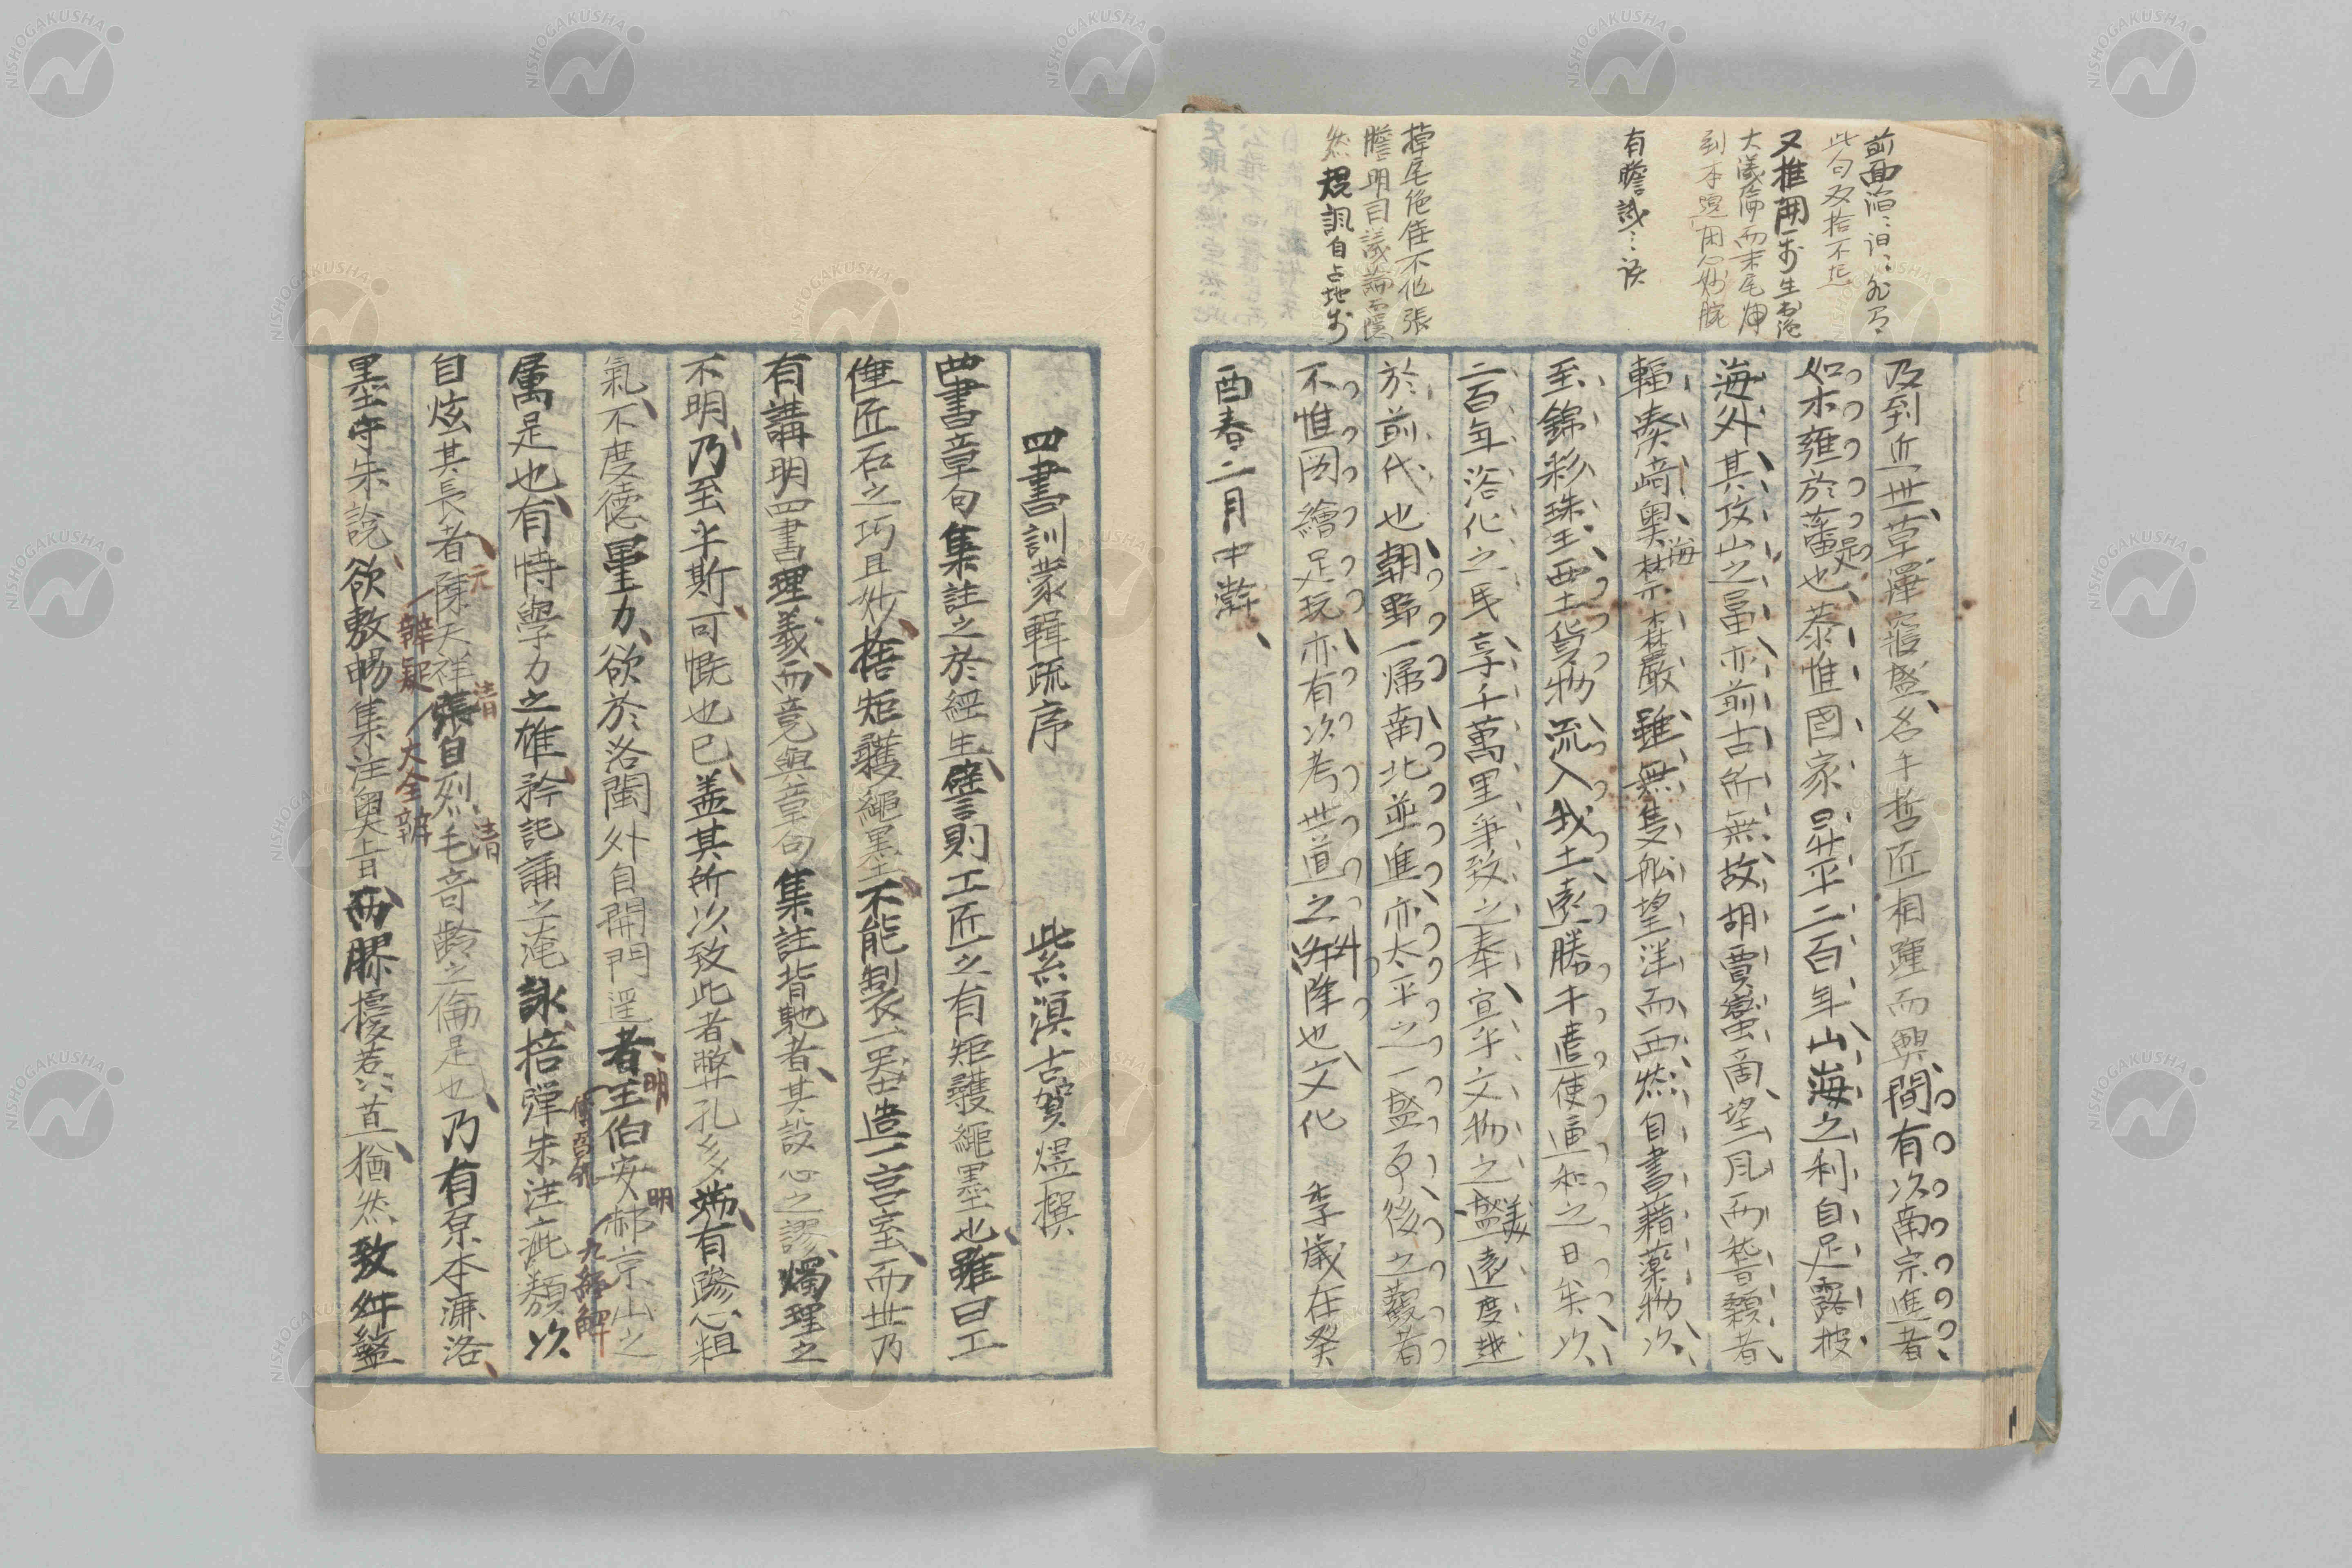 前面
此句又
又推開一歩生出
大議論而末尾
到本題
有
掉尾絶佳不他張
膽明目議論而隠
然規諷自占地歩
及到近世草澤寖盛名手哲匠相踵而興間有次南宗進者
如木雍於藩足也恭惟國家昇平二百年山海之利自足露披
海外其攻山之冨亦前古所無故胡賈蠻商望風而稽顙者
輻湊崎奥海禁森嚴雖無隻舩望洋而西然自書籍薬物次
至錦彩珠玉西土貨物流入我土遠勝于遣使通和之日矣以
二百年浴化之民享千萬里争致之奉宜乎文物之盛美遠度越
於前代也朝野一帰南北並進亦太平之一盛事後之觀者
不惟図繪足玩亦有次考世道之升降也文化 季歳在癸
酉春二月中澣
四書訓蒙輯疏序 紫溟古賀煜撰
四書章句集註之於經生譬則工匠之有矩矱繩墨也雖曰工
倕匠石之巧且妙捨矩矱繩墨不能製一器造一宮室而世乃
有講明四書理義而竟與章句集註背馳者其設心之謬燭理之
不明乃至乎斯可慨也已盖其所次致此者弊孔多端有慘心粗
氣不度徳量力欲於洛閩外自開門逕者王伯安郝京山之
明
傳習録
明
九經解
属是也有恃學力之雄矜記誦之淹詠掊彈朱注疵纇次
自炫其長者陳天祥張自烈毛奇齢之倫是也乃有原本濂洛
元
辨疑
清
大全辨
清
墨守朱説欲敷暢集注奥旨而膠擾惹 直猶然致舛盭